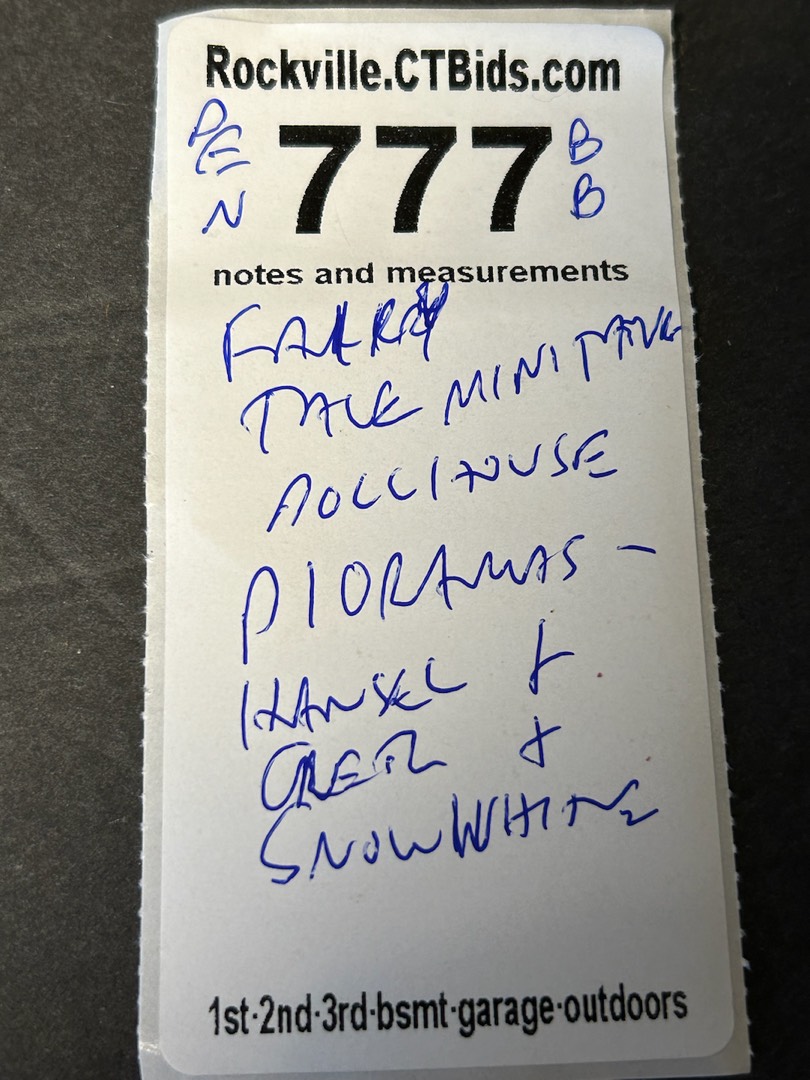 Rockville.CTBids.com
DEN 777 BB
notes and measurements
FAIRY
TALE MINIATURE
DOLLHOUSE
DIORAMAS -
HANSEL &
GRETL &
SNOW WHITE
1st·2nd·3rd·bsmt·garage·outdoors